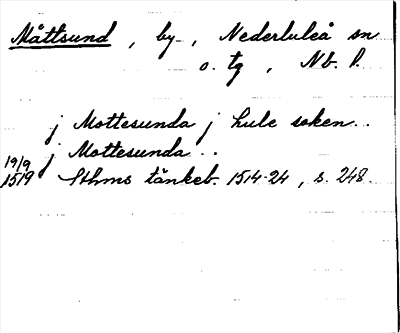 Måttsund, by, Nederluleå sn
o. tg, Nb. l.
j Mottesunda j Lule soken..
j Mottesunda..
19/9 1519 Sthms tänkeb. 1514-24, s. 248.